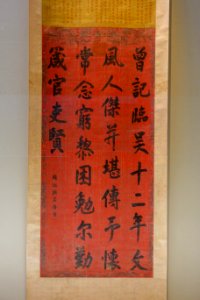 曾記臨吳十二年文
風人傑並堪傳予懷
常念窮黎困勉爾勤
箴官吏賢